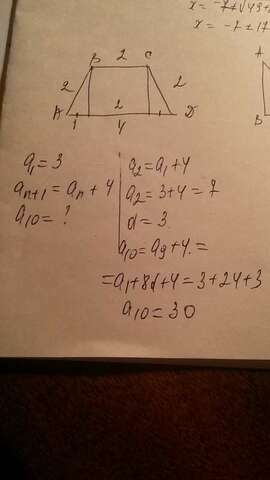 x = -7±√49+
x = -7±17
B 2 C
2 2
A 1 2 D
4
A
B
a₁ = 3
aₙ₊₁ = aₙ + 4
a₁₀ = ?
a₂ = a₁ + 4
a₂ = 3+4 = 7
d = 3.
a₁₀ = a₉ + 4. =
= a₁ + 8d + 4 = 3 + 24 + 3
a₁₀ = 30